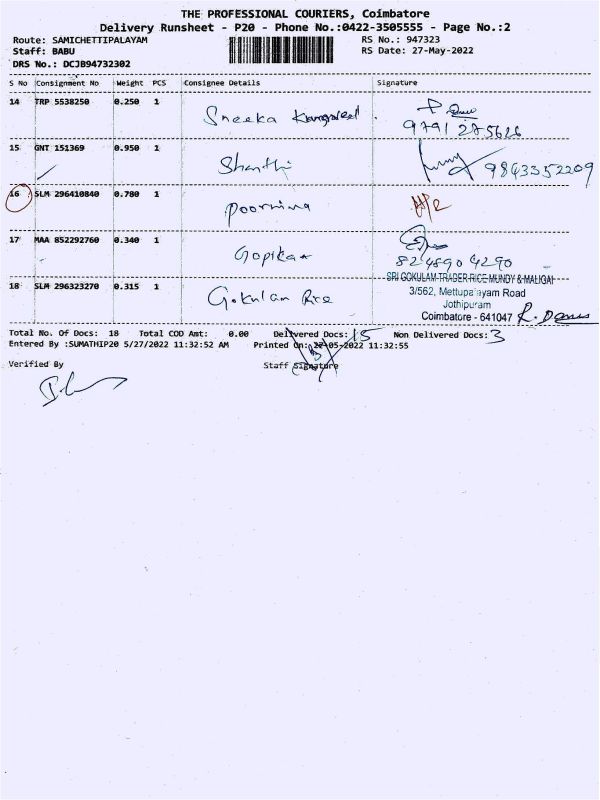 THE PROFESSIONAL COURIERS, Coimbatore
Delivery Runsheet - P20 - Phone No.:0422-3505555 - Page No.:2
Route: SAMICHETTIPALAYAM RS No.: 947323
Staff: BABU RS Date: 27-May-2022
DRS No.: DCJB94732302
S No Consignment No Weight PCS Consignee Details Signature
14 TRP 5538250 0.250 1 Sneeka
9791275626
15 GNT 151369 0.950 1 Shanthi 9843352209
16 SLM 296410840 0.780 1 Poornima
17 MAA 852292760 0.340 1 Gopika
8248904290
18 SLM 296323270 0.315 1 Gokulam Rice SRI GOKULAM TRADER RICE MUNDY & MALIGAI
3/562, Mettupalayam Road
Jothipuram
Coimbatore - 641047
Total No. Of Docs: 18 Total COD Amt: 0.00 Delivered Docs: 15 Non Delivered Docs: 3
Entered By :SUMATHIP20 5/27/2022 11:32:52 AM Printed On: 27-05-2022 11:32:55
Verified By Staff Signature